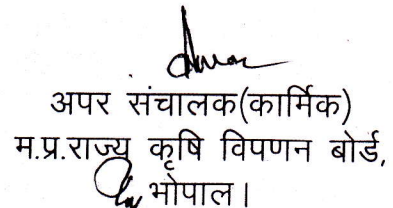 अपर संचालक(कार्मिक)
म.प्र.राज्य कृषि विपणन बोर्ड,
भोपाल।